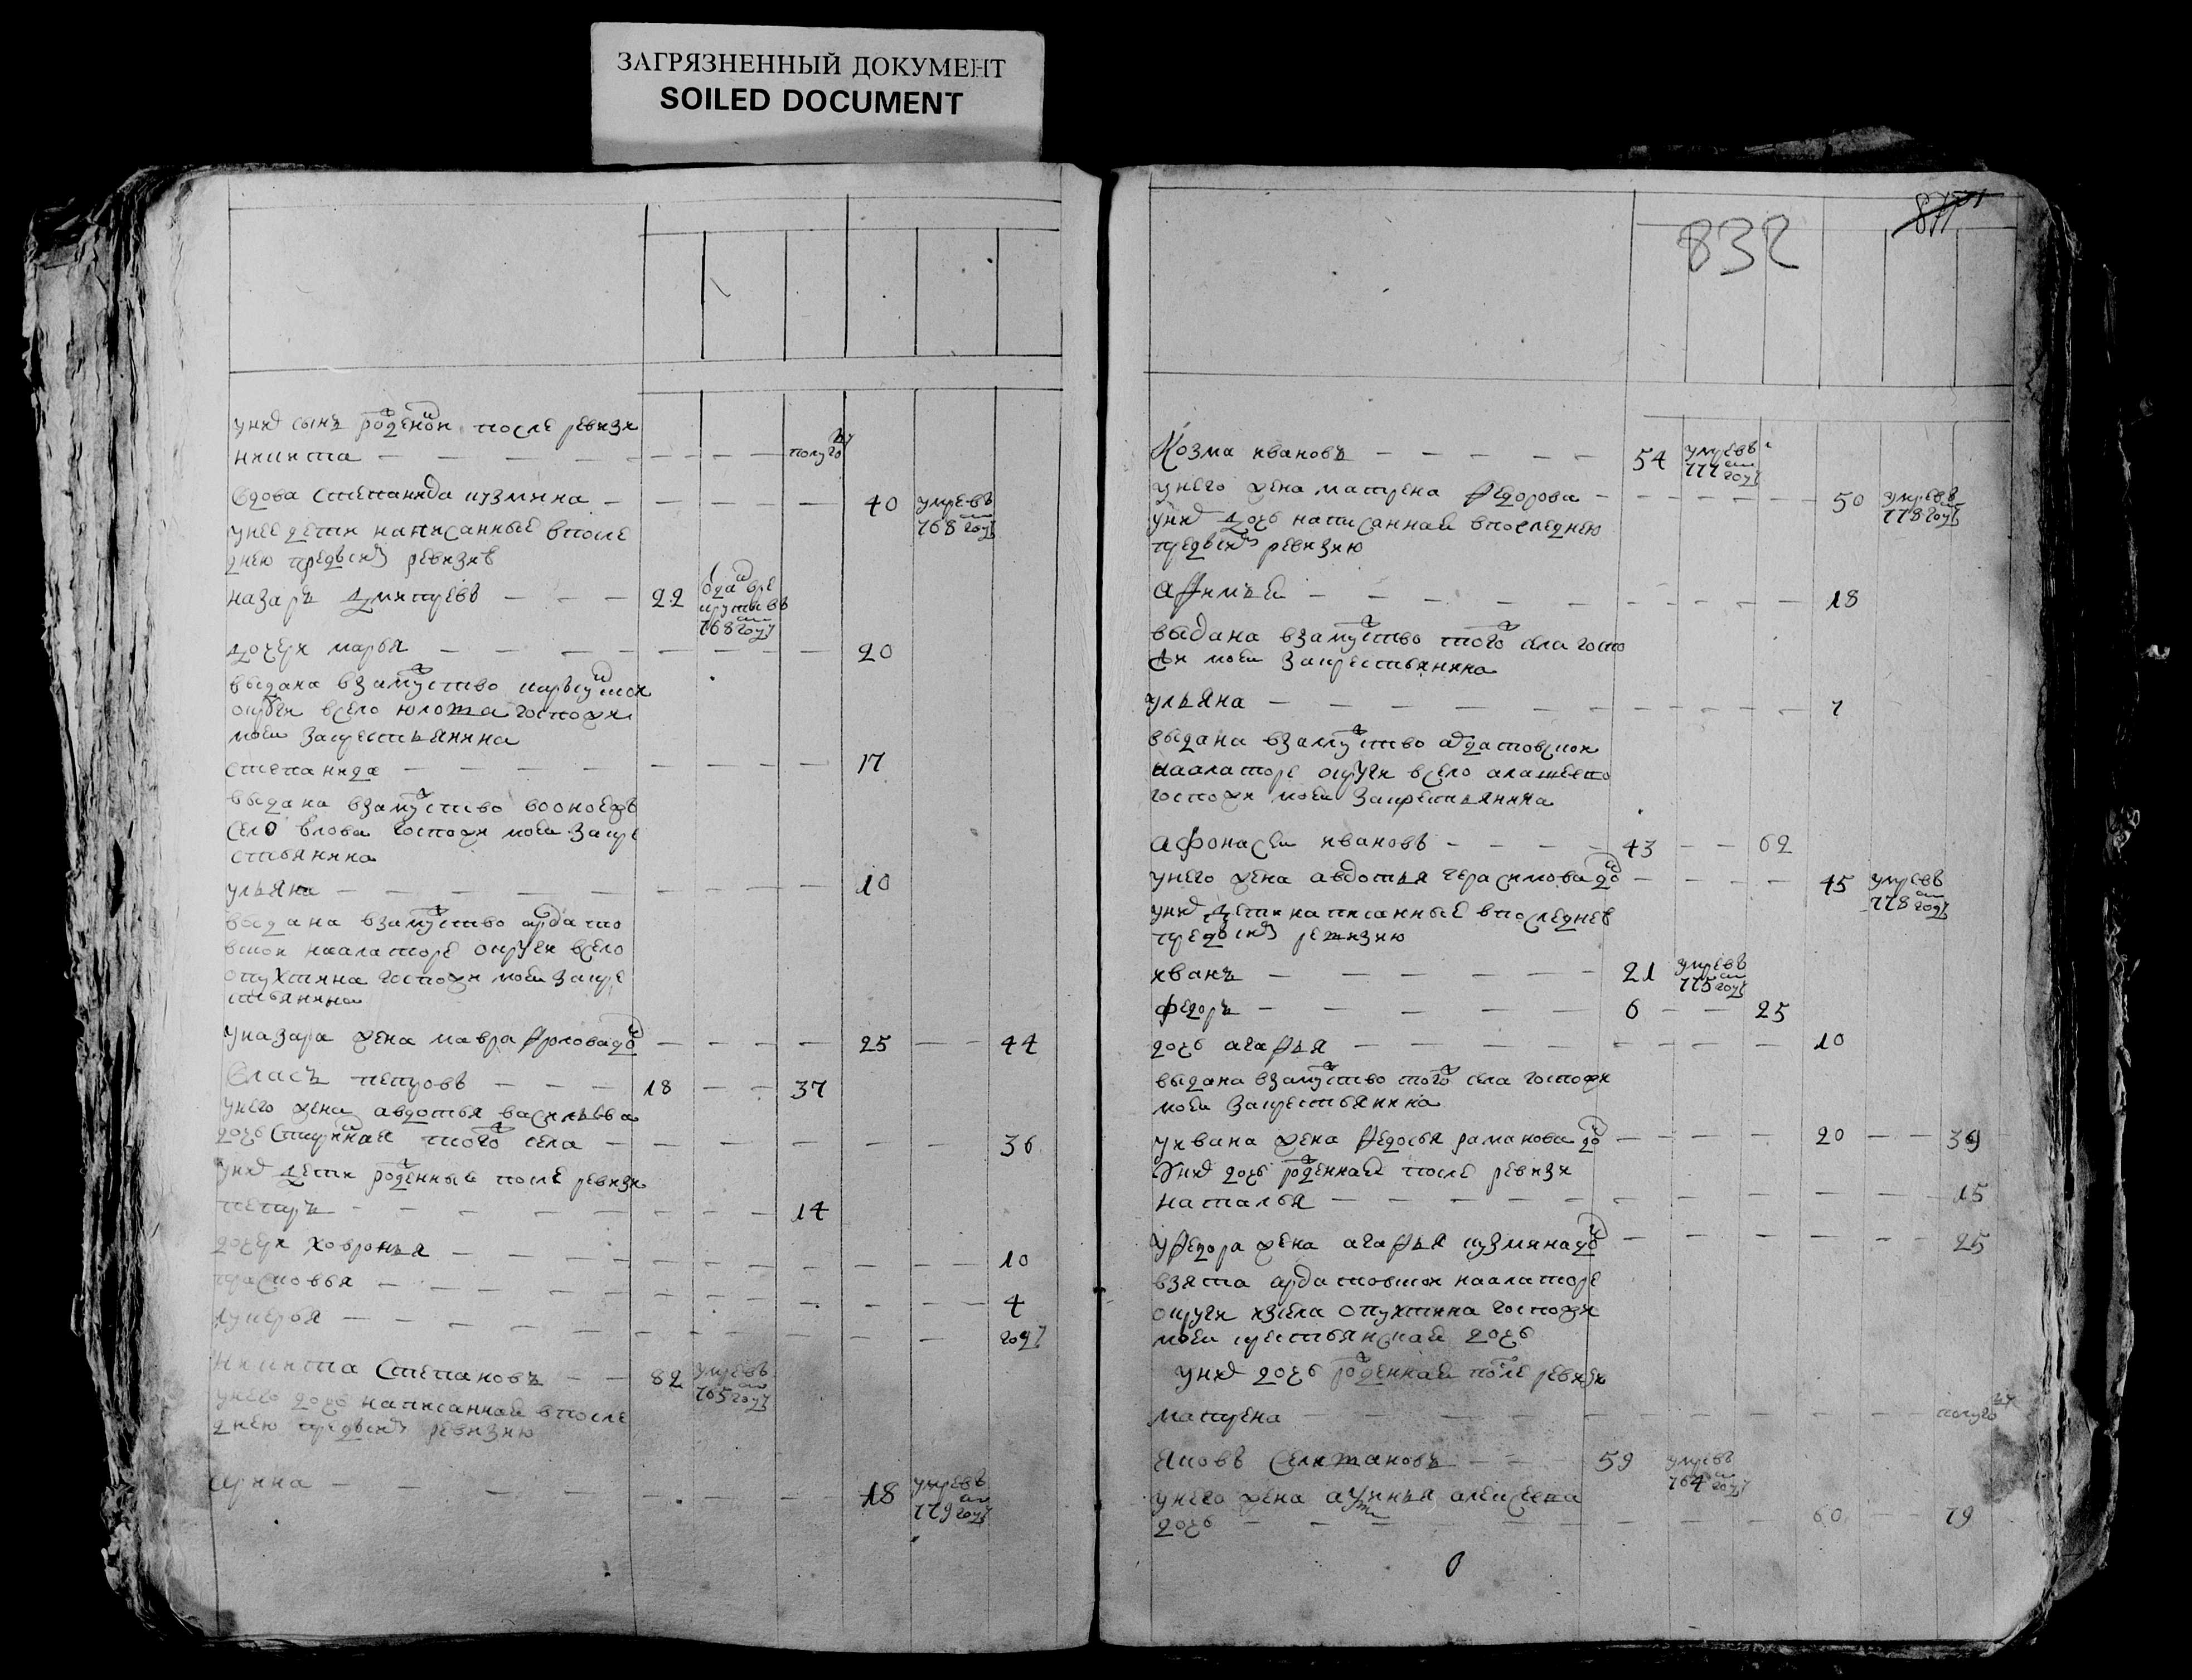 ЗАГРЯЗНЕННЫЙ ДОКУМЕНТ
SOILED DOCUMENT
уних сынъ рожденои после ревизи
никита — полугоду
вдова степанида кузмина — 40 умре въ 768 году
унее дети написанные впосле
днею предъ сих ревизию
назаръ дмитревъ — 22 отдан в рекруты въ 768 году
дочери марья — 20
выдана взамужство
округи вцело юлота госпожи
моеи закрестьянина
степанида — 17
выдана взамужство
село госпожи моеи закре
стьянина
ульяна — 10
выдана взамужство ардато
вскои наалаторе округи всело
опухтина госпожи моеи закре
стьянина
уназара жена мавра фролова до — 25 — 44
власъ петровъ — 18 — 37
унего жена авдотья васильева
дочь старинная того села — 36
уних дети рожденные после ревизи
петръ — 14
дочери ховронья — 10
прасковья — 4
лукерья — году
никита степановъ — 82 умре въ 765 году
унего дочь написанная впосле
днею предъ сих ревизию
ирина — 18 умре въ 779 году
832
козма ивановъ — 54 умре въ 777 году
унего жена матрена федорова — 50 умре въ 778 году
уних дочь написанная впоследнею
предъ сих ревизию
афимья — 18
выдана взамужство того села госпо
жи моеи закрестьянина
ульяна — 7
выдана взамужство ардатовскои
наалаторе округи всело
госпожи моеи закрестьянина
афонасеи ивановъ — 43 — 62
унего жена авдотья герасимова до — 45 умре въ 778 году
уних дети написанные впоследнею
предъ сих ревизию
иванъ — 21 умре въ 775 году
федоръ — 6 — 25
дочь агафья — 10
выдана взамужство того села госпожи
моеи закрестьянина
уивана жена федосья раманова до — 20 — 39
уних дочь рожденная после ревизи
наталья — 15
уфедора жена агафья кузмина до — 25
взята ардатовскои наалаторе
округи изсела опухтина госпожи
моеи крестьянская дочь
уних дочь рожденная после ревизи
матрена — полугоду
яковъ селивановъ — 59 умре въ 764 году
унего жена алексеева
дочь — 60 — 79